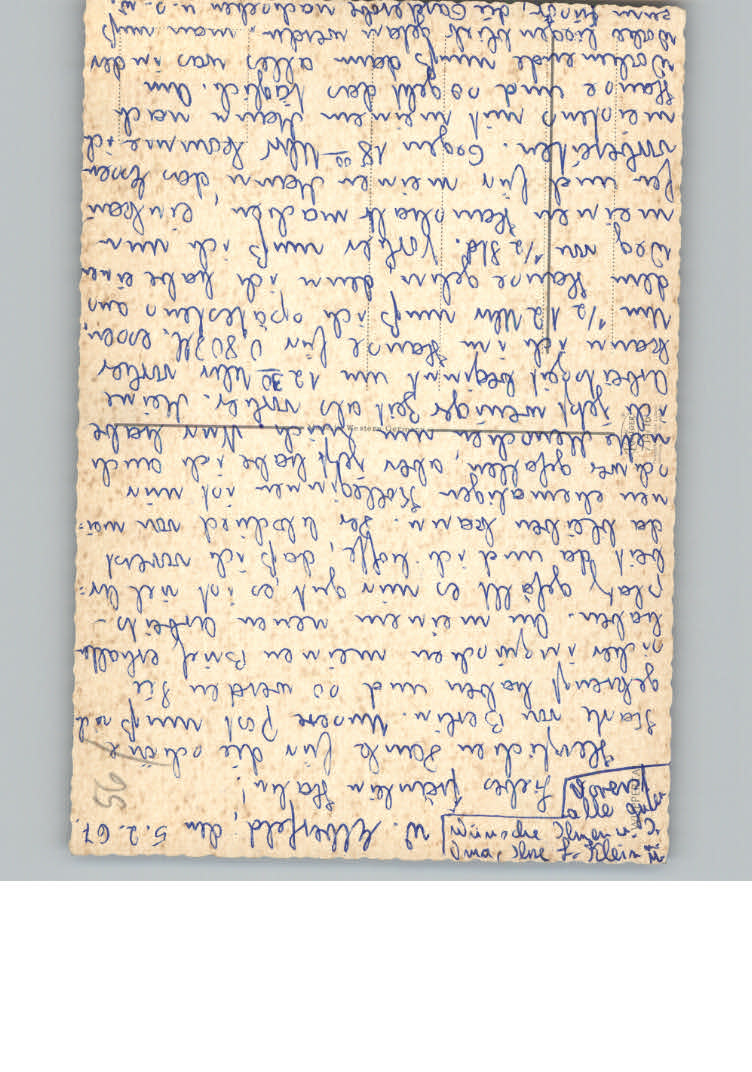 W. Elberfeld, den, 5.2.67.
Liebes Fräulein Hahn!
Herzlichen Dank für die schöne
Karte von Berlin. Unsere Post muß sich
gekreuzt haben und so werden Sie
sicher inzwischen meinen Brief erhalten
haben. An meinem neuen Arbeits-
platz gefällt es mir gut, es ist viel Ar-
beit da und ich hoffe, daß ich vorerst
da bleiben kann. Der Abschied von mei-
nen ehemaligen Kolleginnen ist mir
schwer gefallen, aber jetzt habe ich auch
nette Menschen um mich. Nun habe
ich jetzt weniger Zeit als vorher. Meine
Arbeitszeit beginnt um 12 30 Uhr vorher
kann ich im Hause für 0.80 M. essen,
Um 1/2 12 Uhr muß ich spätestens aus
dem Hause gehen denn ich habe einen
Weg von 1/2 Std. Vorher muß ich nun
meinen Haushalt machen, einkau-
fen und für meinen Mann das Essen
vorbereiten. Gegen 18 00 Uhr komme ich
meistens mit meinem Mann nach
Hause und so geht das täglich. Am
Wochenende muß dann alles was in der
Woche liegen bleibt getan werden, man muß
zum Friseur, die Garderobe nachsehen u.s.w.
Oma, Ihre L. Klein
wünsche Ihnen u. Ihrer
alle Gute
Western Germany
56